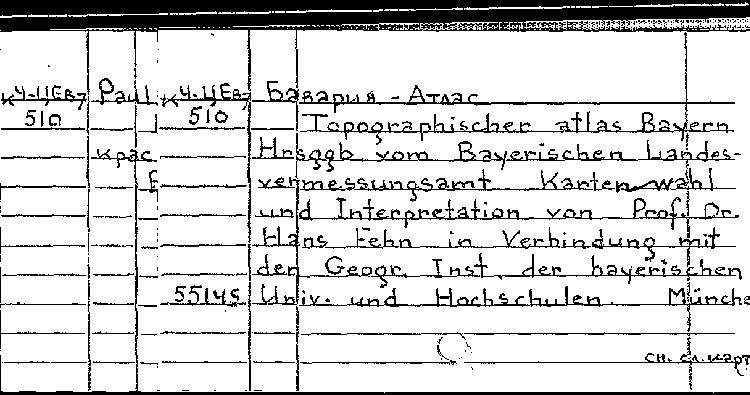 К Ч-ЦЕв7 Paul К Ч-ЦЕв7 Бавария - Атлас
510 510 Topographischer atlas Bayern
крас Hrsggb vom Bayerischen Landes-
vermessungsamt Kartenwahl
und Interpretation von Prof. Dr.
Hans Fehn in Verbindung mit
den Geogr. Inst. der bayerischen
55145 Univ. und Hochschulen Münche
сн. сл. карт